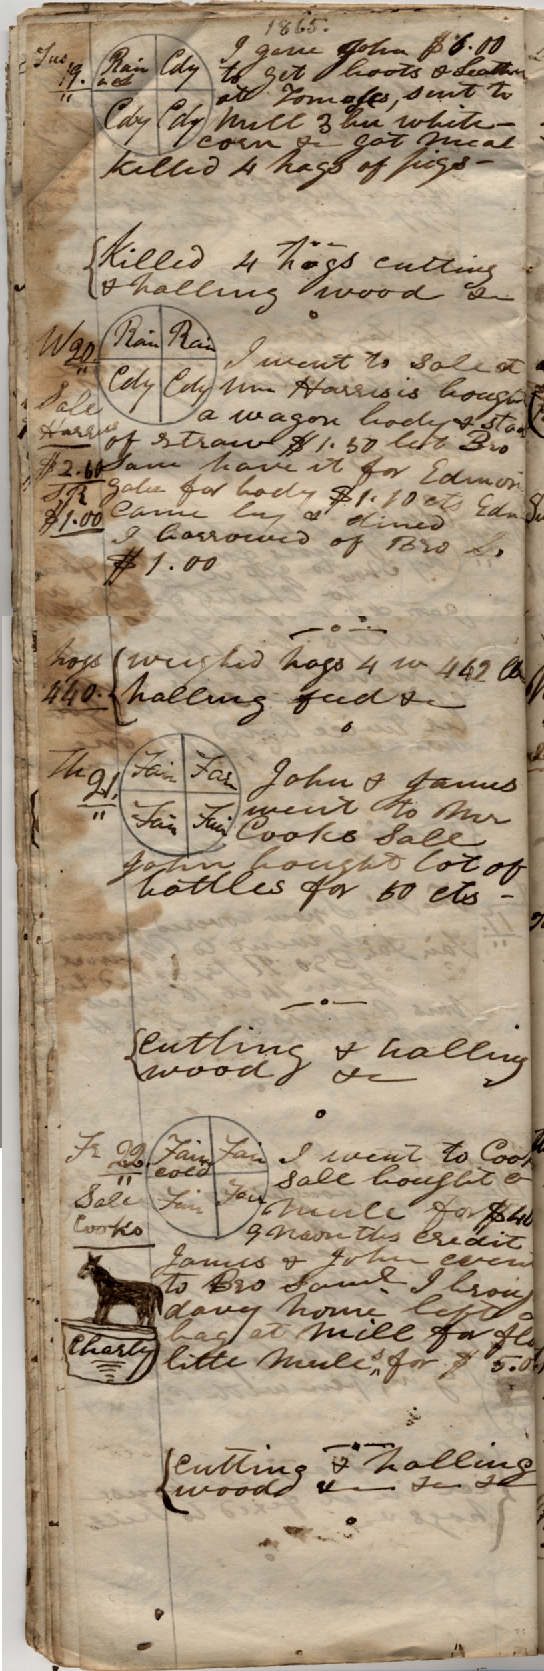 1865.
Tus 19. Rain and Cdy I gave John $6.00
to get boots & Leather
at Tomoses, sent to
Cdy Cdy Mill 3 bu white
corn &c got meal
killed 4 hogs of pigs -
{Killed 4 hogs cutting
& halling wood &c
W 20. Rain Rain
I went to Sale at
Cdy Cdy Wm Harrisis bought
Sale a wagon body &
Harris of straw $1.50 let Bro
$2.60 Sam have it for
gave for body $1.10 cts
$1.00 came by & dined
I borrowed of Bro S.
$1.00
hogs {weighed hogs 4 w 442 lb
440. halling feed &c
Th 21. Fair Fair John & James
Fair Fair went to Mr
Cooks Sale
John bought lot of
bottles for 50 cts -
{cutting & halling
wood &c
Fr 22. Fair cold Fair I went to
Sale Fair Fair Sale bought a
Cooks mule for $40
9 months credit
James & John
to Bro Saml. I
davy home left a
bag at mill for
Charly little mules for $
{cutting & halling
wood &c &c &c